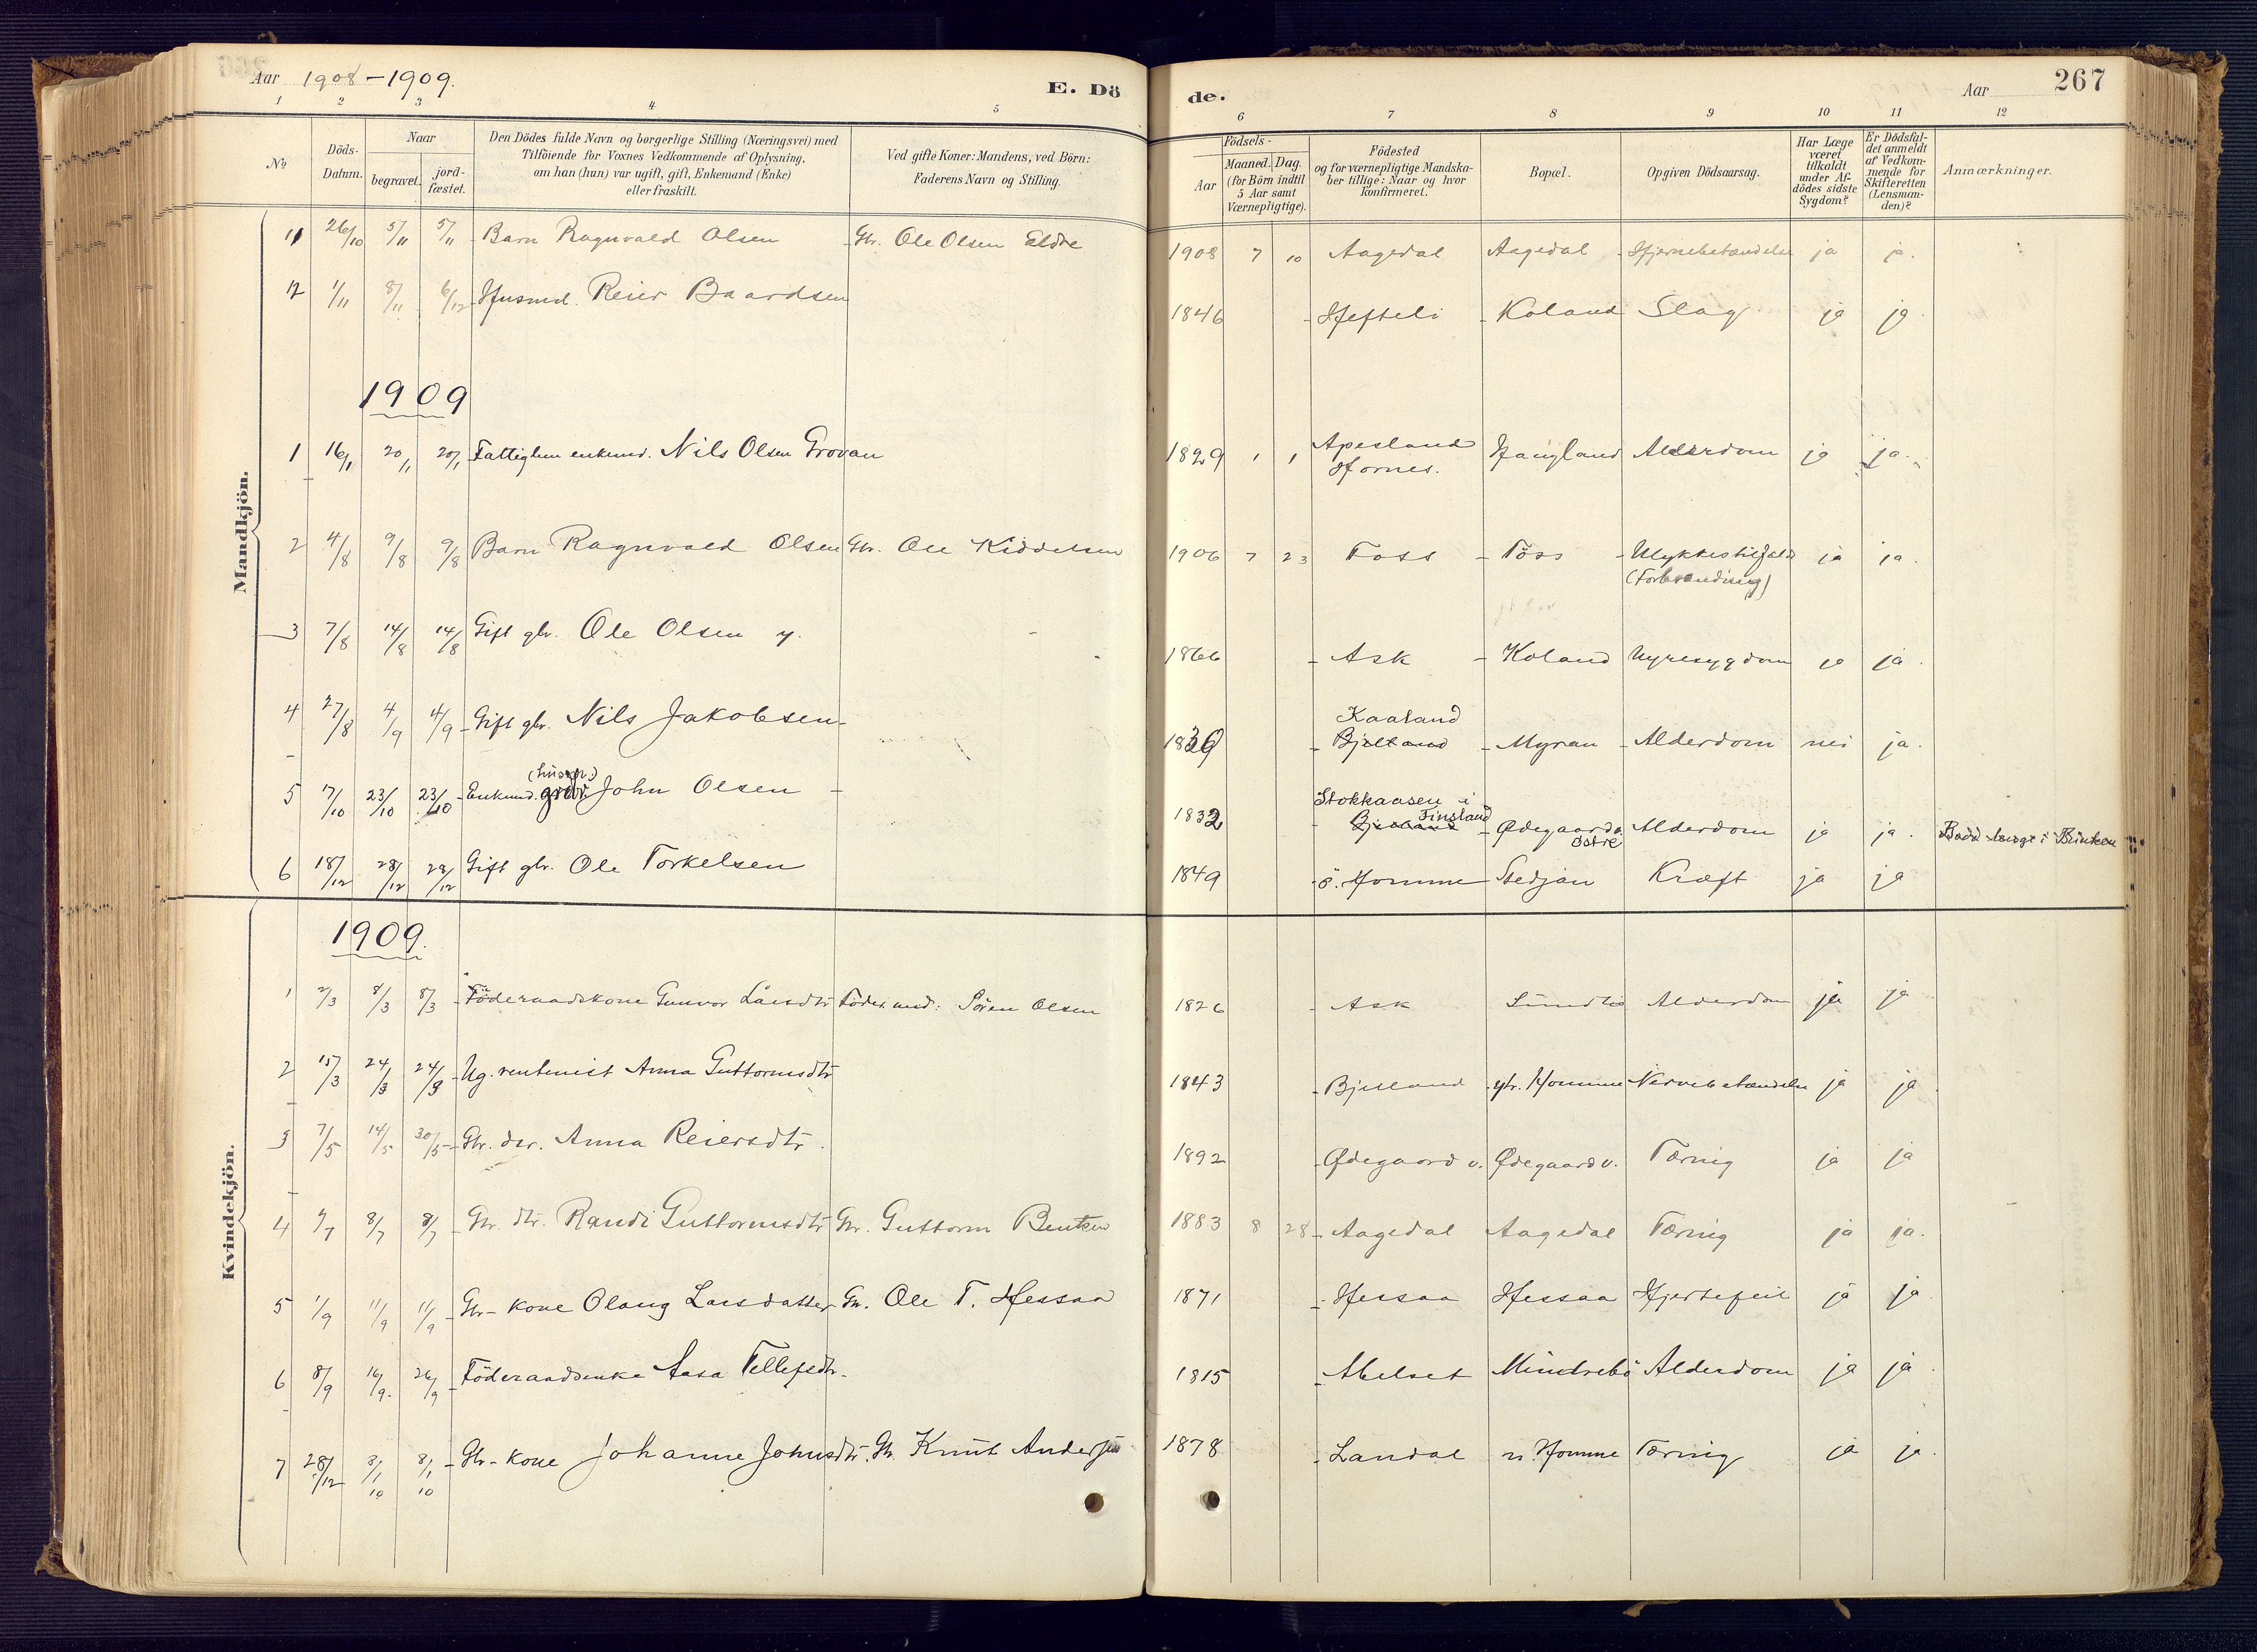 Aar 1908-1909.
E. Dö
de.
Aar
267
1 2 3 4 5 6 7 8 9 10 11 12
No
Döds-
Datum.
Naar
begravet.
jord-
fæstet.
Den Dödes fulde Navn og borgerlige Stilling (Næringsvei) med
Tilföiende for Voxnes Vedkommende af Oplysning,
om han (hun) var ugift, gift, Enkemand (Enke)
eller fraskilt.
Ved gifte Koner: Mandens, ved Börn:
Faderens Navn og Stilling.
Födsels-
Aar
Maaned. Dag.
(for Börn indtil
5 Aar samt
Værnepligtige).
Födested
og for værnepligtige Mandska-
ber tillige: Naar og hvor
konfirmeret.
Bopæl.
Opgiven Dödsaarsag.
Har Læge
været
tilkaldt
under Af-
dödes sidste
Sygdom?
Er Dödsfal-
det anmeldt
af Vedkom-
mende for
Skifteretten
(Lensman-
den)?
Anmærkninger.
Mandkjön.
11 26/10 5/11 5/11 Barn Ragnvald Olsen Gbr. Ole Olsen Eldre 1908 7 10 Aagedal Aagedal Hjernebetændelse ja ja.
12 1/11 8/11 6/12 Husmd. Reier Baardsen 1846 Hefteli Koland Slag ja ja
1909
1 16/1 20/1 20/1 Fattiglem enkemd. Nils Olsen Grovan 1829 1 1 Apesland
Hornes. Haugland Alderdom ja ja.
2 4/8 9/8 9/8 Barn Ragnvald Olsen Gbr. Ole Kiddelsen 1906 7 23 Foss Foss Ulykkestilfæld
(Forbrænding) ja ja.
3 7/8 14/8 14/8 Gift gbr. Ole Olsen y. 1866 Ask Koland Nyresygdom ja ja.
4 27/8 4/9 4/9 Gift gbr. Nils Jakobsen 1839 Kaaland
Bjelland Myran Alderdom nei ja.
5 17/10 23/10 23/10 Enkemd. John Olsen 1832 Stokkaasen i
Finsland Ødegaard
östre Alderdom ja ja. i
6 18/12 28/12 28/12 Gift gbr. Ole Torkelsen 1849 ö. Homme Stedjan Kræft ja ja
Kvindekjön.
1909.
1 2/3 8/3 8/3 Föderaadskone Gunvor Larsdtr Föder.md: Sören Olsen 1826 Ask Alderdom ja ja
2 15/3 24/3 24/3 Ug. rentenist Anna Guttormsdtr 1843 Bjelland ytr. Homme Nervebetændelse ja ja
3 7/5 14/5 30/5 Gbr. dtr. Anna Reiersdtr. 1892 Ødegaard v. Ødegaard v. Tæring ja ja
4 8/7 8/7 Gbr. dtr. Randi Guttormsdtr Gbr. Guttorm Bentsen 1883 8 28 Aagedal Aagedal Tæring ja ja.
5 1/9 11/9 11/9 Gbr-kone Olaug Larsdatter Gbr. Ole T. Hessaa 1871 Hessaa Hessaa Hjertefeil ja ja
6 8/9 16/9. 26/9 Föderaadsenke Aasa Tellefsdtr. 1815 Abelset Mindrebö Alderdom ja ja.
7 28/12 8/1 10 8/1 10 Gbr-kone Johanne Johnsdtr. Gbr. Knut Andersen 1878 Landal n. Homme Tæring ja ja.